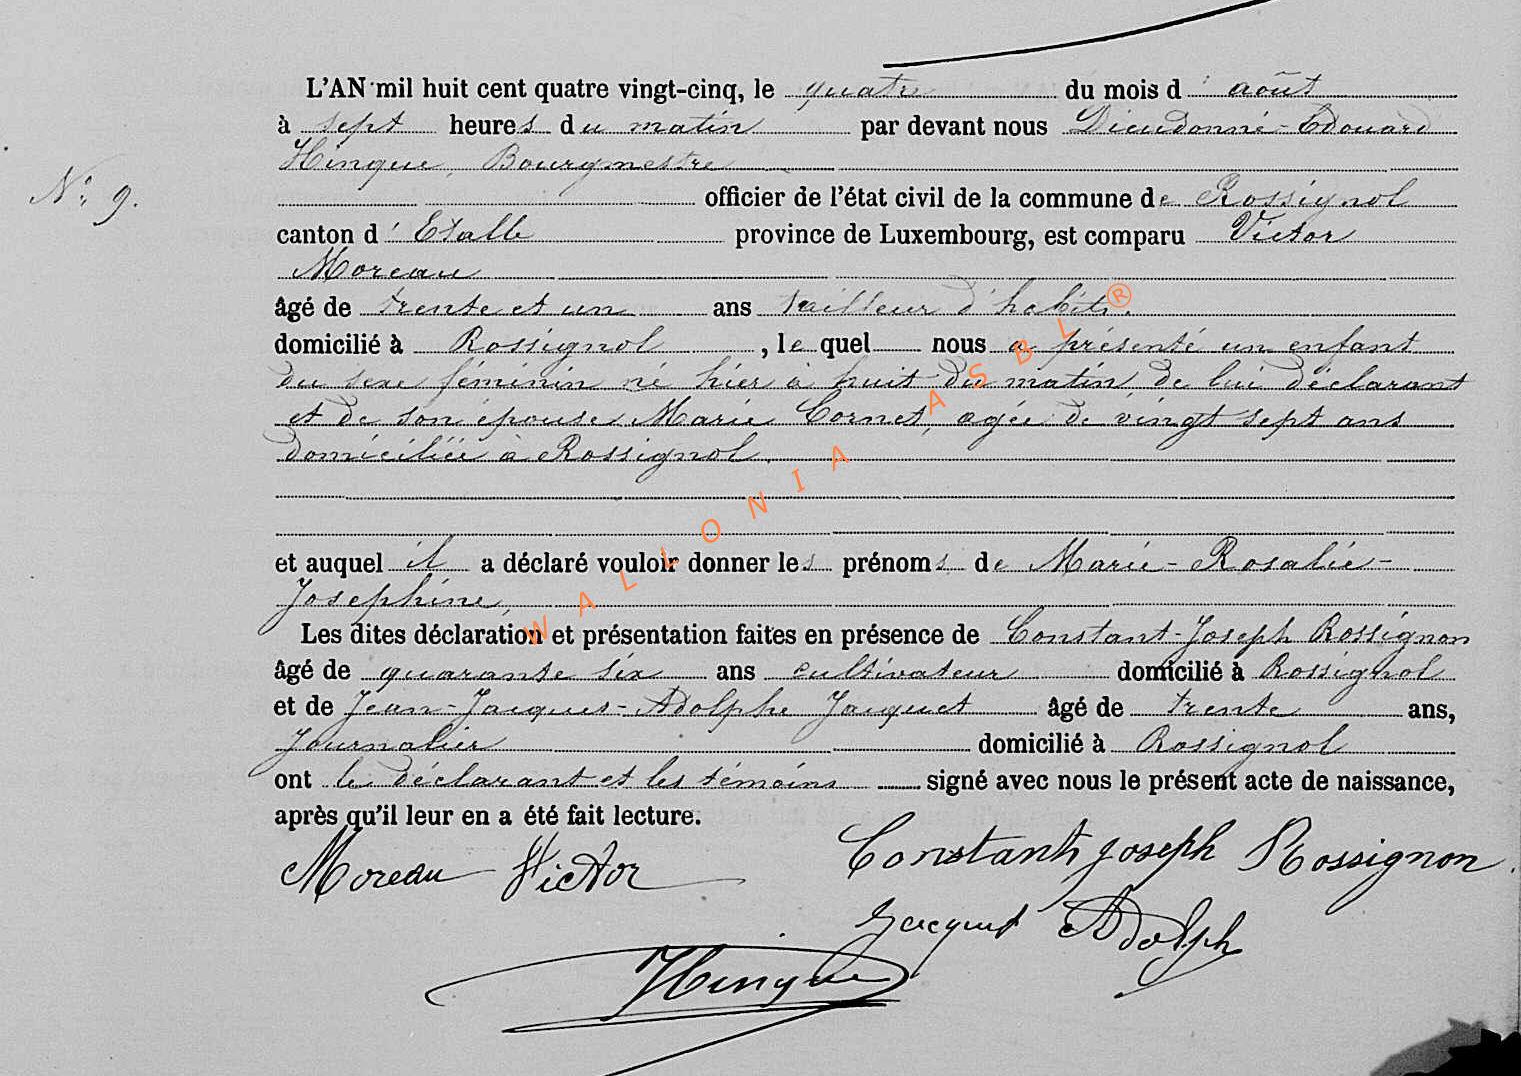 L'AN mil huit cent quatre vingt-cinq, le quatre du mois d' août
à sept heures du matin par devant nous Dieudonné-Edouard
Hinque, Bourgmestre
N° 9.
officier de l'état civil de la commune de Rossignol
canton d'Etalle province de Luxembourg, est comparu Victor
Moreau
âgé de trente et un ans tailleur d'habits.
domicilié à Rossignol, lequel nous a présenté un enfant
du sexe féminin né hier à huit du matin de lui déclarant
et de son épouse Marie Cornet, agée de vingt sept ans
domiciliée à Rossignol.
et auquel il a déclaré vouloir donner les prénoms de Marie-Rosalie-
Josephine,
Les dites déclaration et présentation faites en présence de Constant-Joseph Rossignon
âgé de quarante six ans cultivateur domicilié à Rossignol
et de Jean-Jacques-Adolphe Jacquet âgé de trente ans,
journalier domicilié à Rossignol
ont le déclarant et les témoins signé avec nous le présent acte de naissance,
après qu'il leur en a été fait lecture.
Moreau Victor Constant joseph Rossignon
Jacquet Adolph
Hinque
WALLONIA ASBL ®